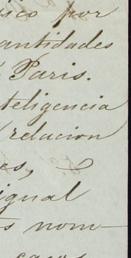 sico por
cantidades
Paris.
teligencia
relacion
es,
igual
s nom-
casos